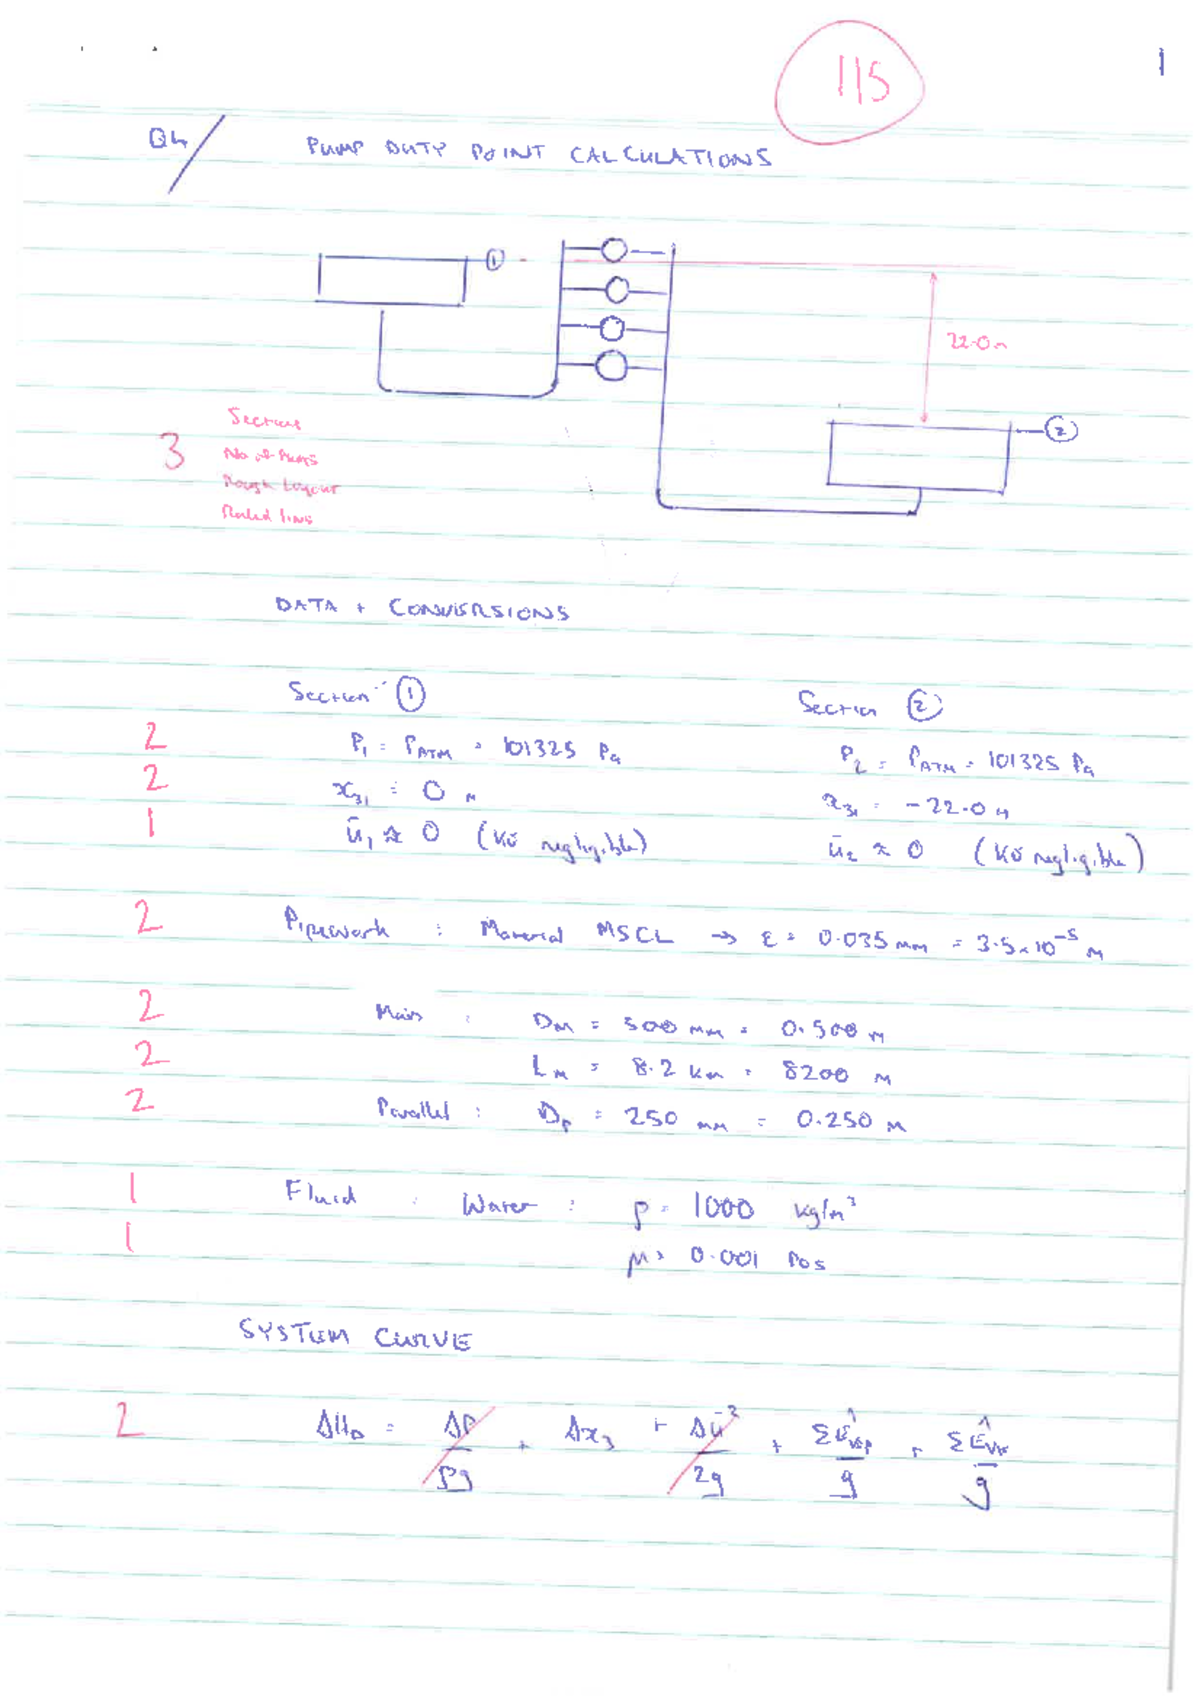 115
1
Q4/ PUMP DUTY POINT CALCULATIONS
1
22.0m
2
3
Sections
No of Pumps
Rough Layout
Ruled line
DATA + CONVERSIONS
Section ① Section ②
2 P₁ = P_ATM = 101325 Pa P₂ = P_ATM = 101325 Pa
2 x₃₁ = 0 m x₃₁ = -22.0 m
1 ū₁ ≈ 0 (KE negligible) ū₂ ≈ 0 (KE negligible)
2 Pipework : Material MSCL → ε = 0.035 mm = 3.5×10⁻⁵ m
2 Main : D_M = 500 mm = 0.500 m
2 L_M = 8.2 km = 8200 m
2 Parallel : D_P = 250 mm = 0.250 m
1 Fluid : Water : ρ = 1000 kg/m³
1 μ = 0.001 Pas
SYSTEM CURVE
2 ΔH_D = ΔP/ρg + Δx₃ + Δū²/2g + ΣÊ_VSP/g + ΣÊ_VF/g